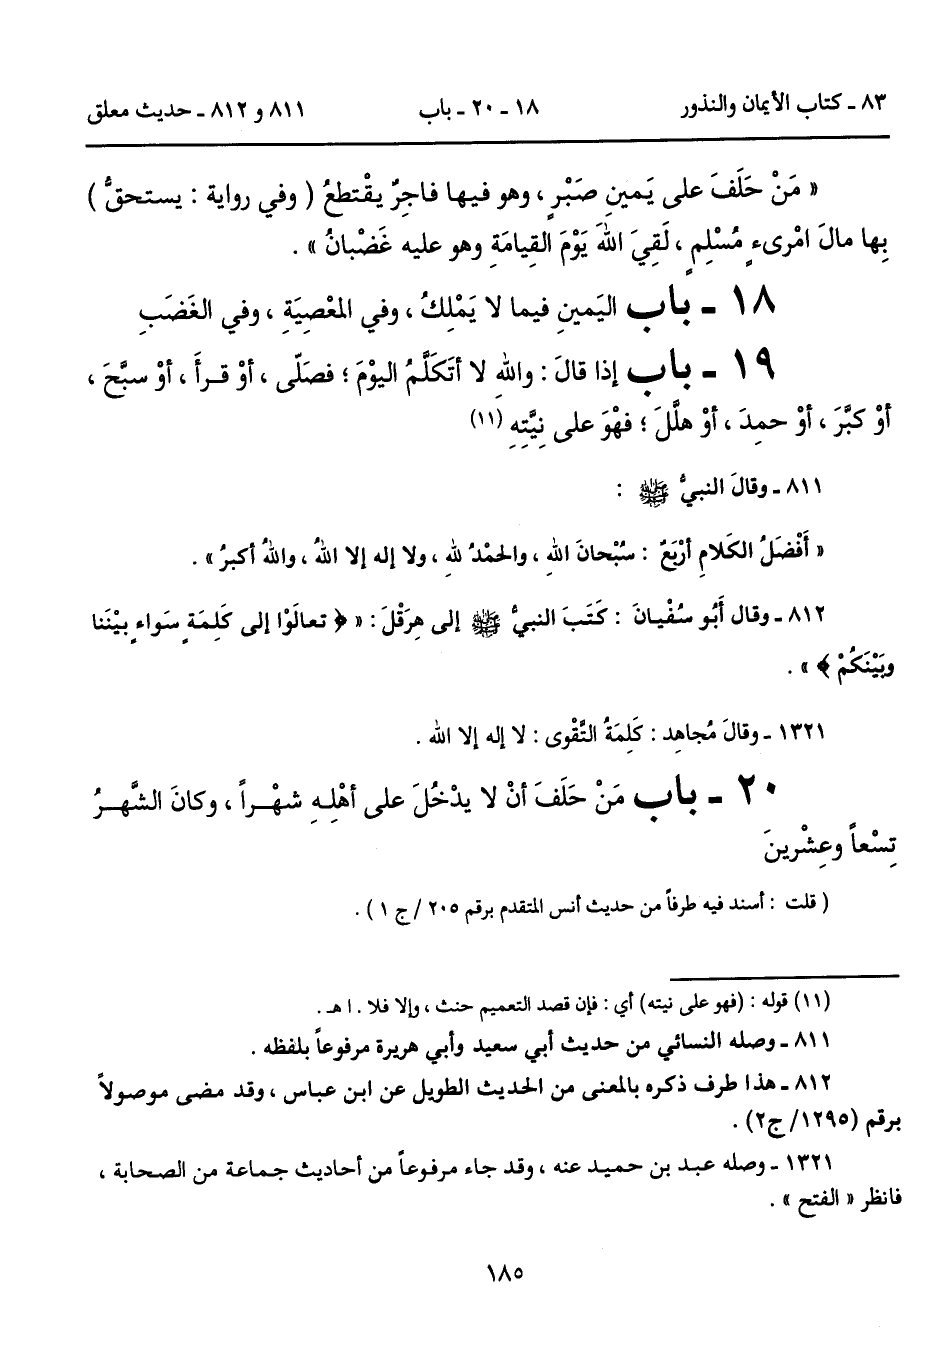 ٨٣ ـ كتاب الأيمان والنذور ١٨ ـ ٢٠ ـ باب ٨١١ و ٨١٢ ـ حديث معلق
« مَنْ حَلَفَ على يَمينِ صَبْرٍ ، وهو فيها فاجِرٌ يقْتطعُ ( وفي رواية : يستحقُّ )
بِها مالَ امْرىءٍ مُسْلِمٍ ، لَقِيَ اللهَ يَوْمَ القِيامَةِ وهو عليه غَضْبانُ » .
١٨ ـ باب اليَمينِ فيما لا يَمْلِكُ ، وفي المَعْصِيَةِ ، وفي الغَضَبِ
١٩ ـ باب إذا قالَ : واللهِ لا أتَكَلَّمُ اليوْمَ ؛ فصَلّى ، أوْ قرأَ ، أوْ سبَّحَ ،
أوْ كبَّرَ ، أوْ حمِدَ ، أوْ هلَّلَ ؛ فهْوَ على نِيَّتِهِ (١١)
٨١١ ـ وقالَ النبيُّ ﷺ :
« أَفْضَلُ الكَلامِ أرْبَعٌ : سُبْحانَ اللهِ ، والحمْدُ للهِ ، ولا إله إلا اللهُ ، واللهُ أكبرُ » .
٨١٢ ـ وقال أَبُو سُفْيانَ : كَتَبَ النبيُّ ﷺ إلى هِرَقْلَ : « ﴿ تعالَوْا إلى كَلِمَةٍ سَواءٍ بيْنَنا
وبَيْنَكُمْ ﴾ » .
١٣٢١ ـ وقالَ مُجاهِد : كَلِمَةُ التَّقْوى : لا إله إلا الله .
٢٠ ـ باب مَنْ حَلَفَ أنْ لا يدْخُلَ على أهْلِهِ شهْراً ، وكانَ الشَّهرُ
تِسْعاً وعِشْرينَ
( قلت : أسند فيه طرفاً من حديث أنس المتقدم برقم ٢٠٥ / ج ١ ) .
(١١) قوله : (فهو على نيته) أي : فإن قصد التعميم حنث ، وإلا فلا . ا هـ .
٨١١ ـ وصله النسائي من حديث أبي سعيد وأبي هريرة مرفوعاً بلفظه .
٨١٢ ـ هذا طرف ذكره بالمعنى من الحديث الطويل عن ابن عباس ، وقد مضى موصولاً
برقم (١٢٩٥/ ج٢) .
١٣٢١ ـ وصله عبد بن حميد عنه ، وقد جاء مرفوعاً من أحاديث جماعة من الصحابة ،
فانظر « الفتح » .
١٨٥